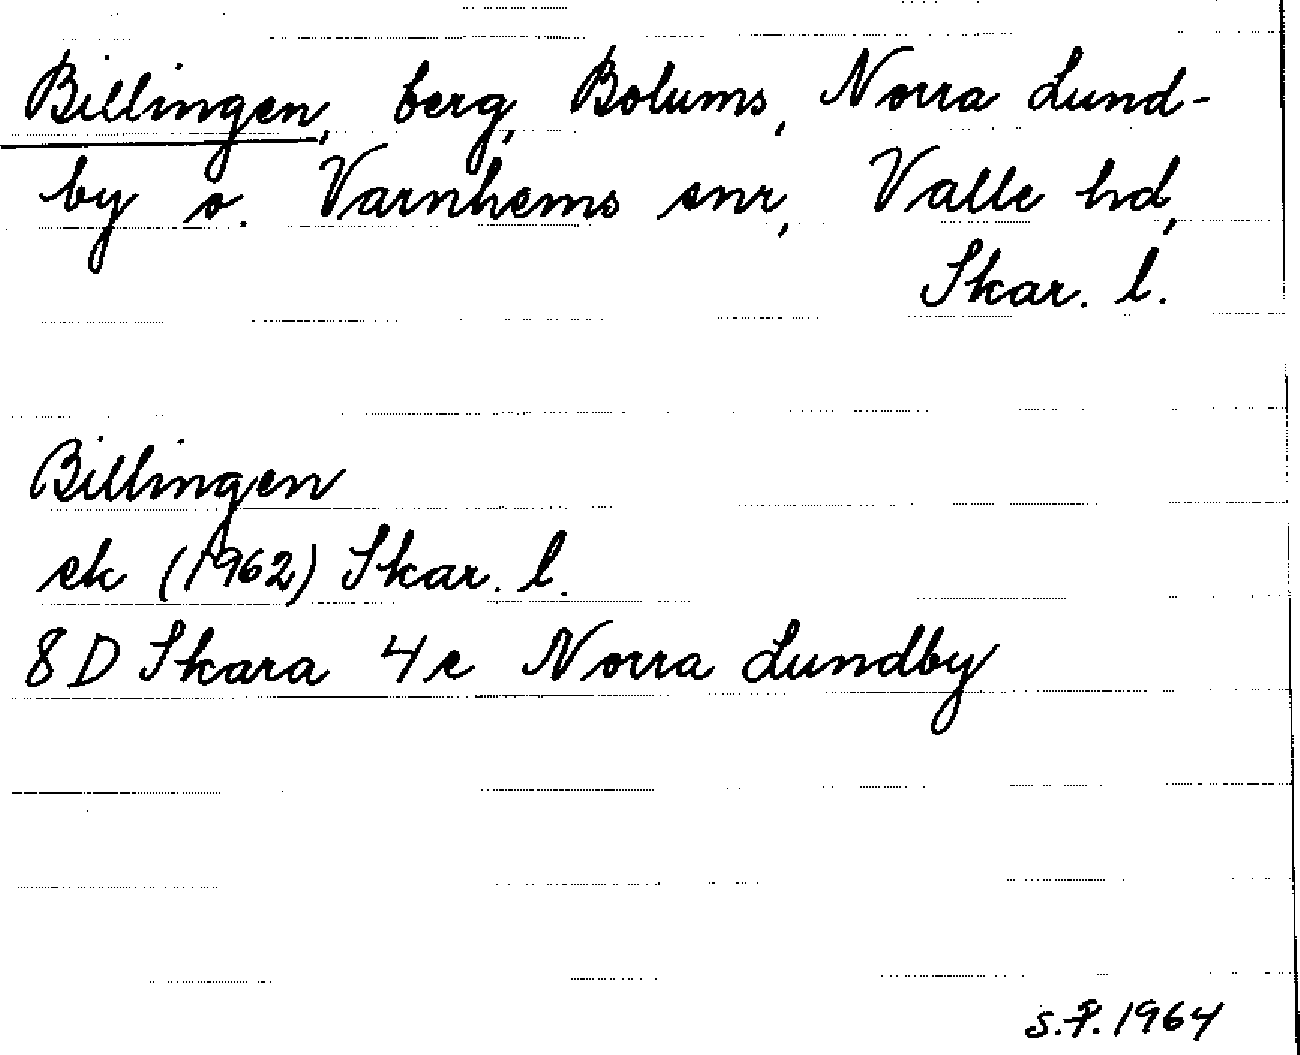 Billingen, berg, Bolums, Norra Lund-
by o. Varnhems snr, Valle hd,
Skar. l.
Billingen
ek (1962) Skar. l.
8 D Skara 4 e Norra Lundby
S.F. 1964